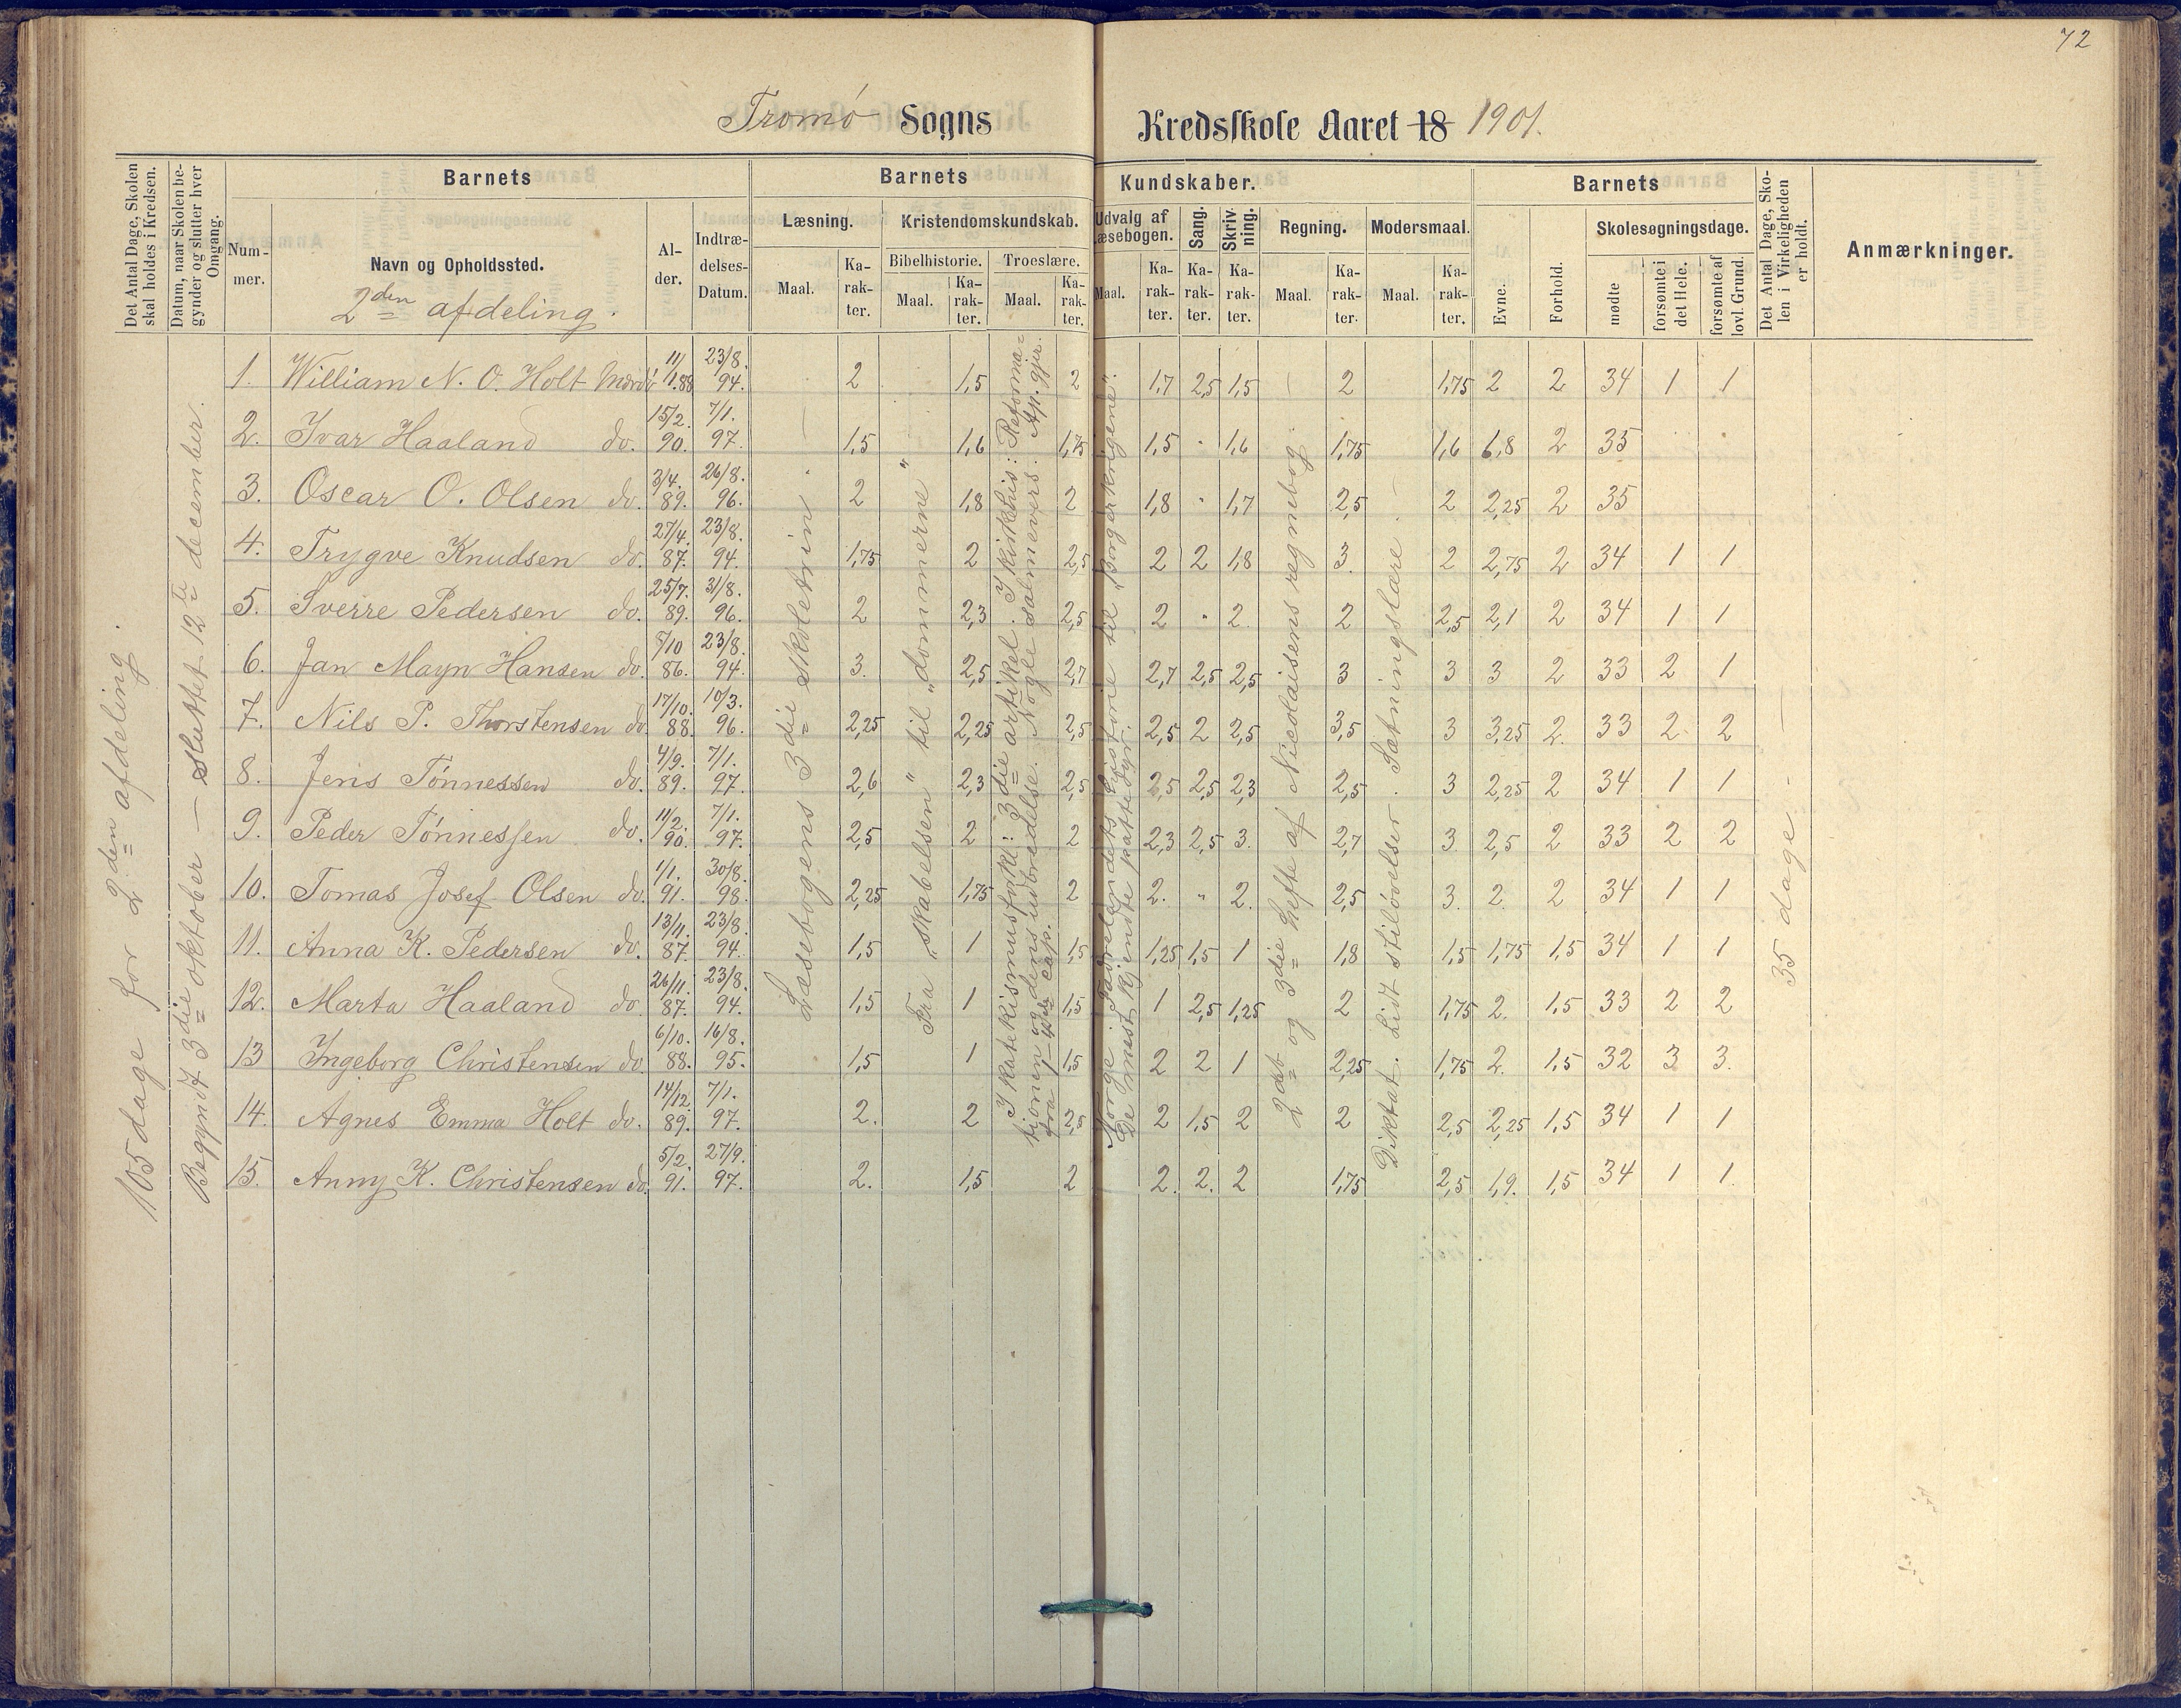 72
Tromø Sogns Kredsskole Aaret 18 1901.
Det Antal Dage, Skolen skal holdes i Kredsen.
Datum, naar Skolen begynder og slutter hver Omgang.
Barnets
Nummer.
Navn og Opholdssted.
2den afdeling.
Alder.
Indtrædelses-Datum.
Barnets Kundskaber.
Læsning.
Maal.
Karakter.
Kristendomskundskab.
Bibelhistorie.
Maal.
Karakter.
Troeslære.
Maal.
Karakter.
Udvalg af Læsebogen.
Maal.
Karakter.
Sang.
Karakter.
Skrivning.
Karakter.
Regning.
Maal.
Karakter.
Modersmaal.
Maal.
Karakter.
Barnets
Evne.
Forhold.
Skolesøgningsdage.
mødte
forsømte i det Hele.
forsømte af lovl. Grund.
Det Antal Dage, Skolen i Virkeligheden er holdt.
Anmærkninger.
105 dage for 2den afdeling.
Begyndt 3die oktober — sluttet 12te december.
Læsebogens 3die skoletrin
Fra "skabelsen" til "dommerne"
I katekismusfork: 3die artikel. I kirkehis: Reformationen og dens udbredelse. Nogle salmevers. Ap. gjer. fra 1— cap.
Norge. Fædrelandets historie til "Borgerkrigene". De mest kjendte pattedyr.
2det og 3die hefte af Nicolaisens regnebog.
Diktat. Lidt stiløvelser. Sætningslære.
35 dage.
1. William N. O. Holt Mærdø 11/1.88 23/8.94. 2 1,5 2 1,7 2,5 1,5 2 1,75 2 2 34 1 1
2. Ivar Haaland do. 15/2.90. 7/1.97. 1,5 1,6 1,75 1,5 " 1,6 1,75 1,6 1,8 2 35
3. Oscar O. Olsen do. 3/4.89. 26/8.96. 2 1,8 2 1,8 " 1,7 2,5 2 2,25 2 35
4. Trygve Knudsen do. 27/4.87. 23/8.94. 1,75 2 2,5 2 2 1,8 3. 2 2,75 2 34 1 1
5. Sverre Pedersen do. 25/7.89. 31/8.96. 2 2,3 2,5 2 " 2. 2 2,5 2,1 2 34 1 1
6. Jan Mayn Hansen do. 5/10 86. 23/8.94. 3. 2,5 2,7 2,7 2,5 2,5 3 3 3 2 33 2 1
7. Nils P. Thorstensen do. 17/10.88. 10/3.96. 2,25 2,25 2,5 2,5 2 2,5 3,5 3 3,25 2. 33 2 2
8. Jens Tønnessen do. 4/9.89. 7/1.97. 2,6 2,3 2,5 2,5 2,5 2,3 2,5 3 2,25 2 34 1 1
9. Peder Tønnessen do. 11/2.90. 7/1.97. 2,5 2 2 2,3 2,5 3. 2,7 3. 2,5 2 33 2 2
10. Tomas Josef Olsen do. 1/1.91. 30/8.98. 2,25 1,75 2 2. " 2. 2,5 3. 2. 2 34 1 1
11. Anna K. Pedersen do. 13/11.87. 23/8.94. 1,5 1 1,5 1,25 1,5 1 1,8 1,5 1,75 1,5 34 1 1
12. Marta Haaland do. 26/11.87. 23/8.94. 1,5 1 1,5 1 2,5 1,25 2 1,75 2. 1,5 33 2 2
13 Ingeborg Christensen do. 6/10.88. 16/8.95. 1,5 1 1,5 2 2 1 2,25 1,75 2. 1,5 32 3 3.
14. Agnes Emma Holt do. 14/12.89. 7/1.97. 2. 2 2,5 2 1,5 2 2 2,5 2,25 1,5 34 1 1
15. Anny K. Christensen do. 5/2.91. 27/9.97. 2. 1,5 2 2. 2. 2 1,75 2,5 1,9. 1,5 34 1 1.